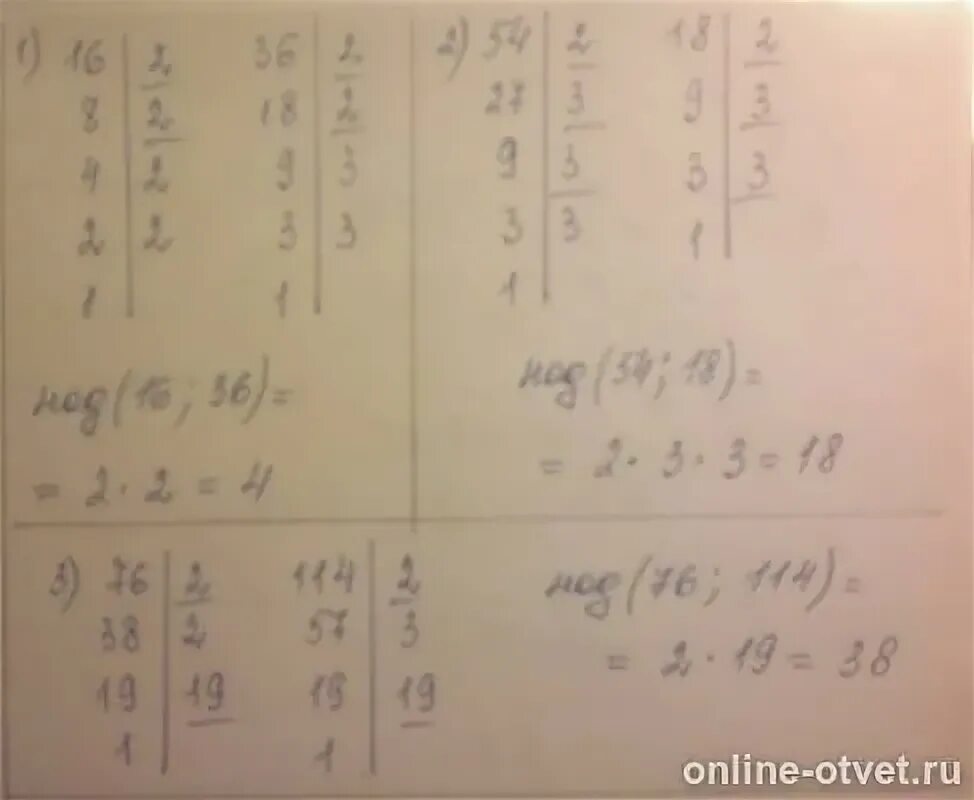 1) 16 | 2 36 | 2
8 | 2 18 | 2
4 | 2 9 | 3
2 | 2 3 | 3
1 | 1 |
нод (16; 36) =
= 2 · 2 = 4
2) 54 | 2 18 | 2
27 | 3 9 | 3
9 | 3 3 | 3
3 | 3 1 |
1 |
нод (54; 18) =
= 2 · 3 · 3 = 18
3) 76 | 2 114 | 2
38 | 2 57 | 3
19 | 19 19 | 19
1 | 1 |
нод (76; 114) =
= 2 · 19 = 38
online-otvet.ru